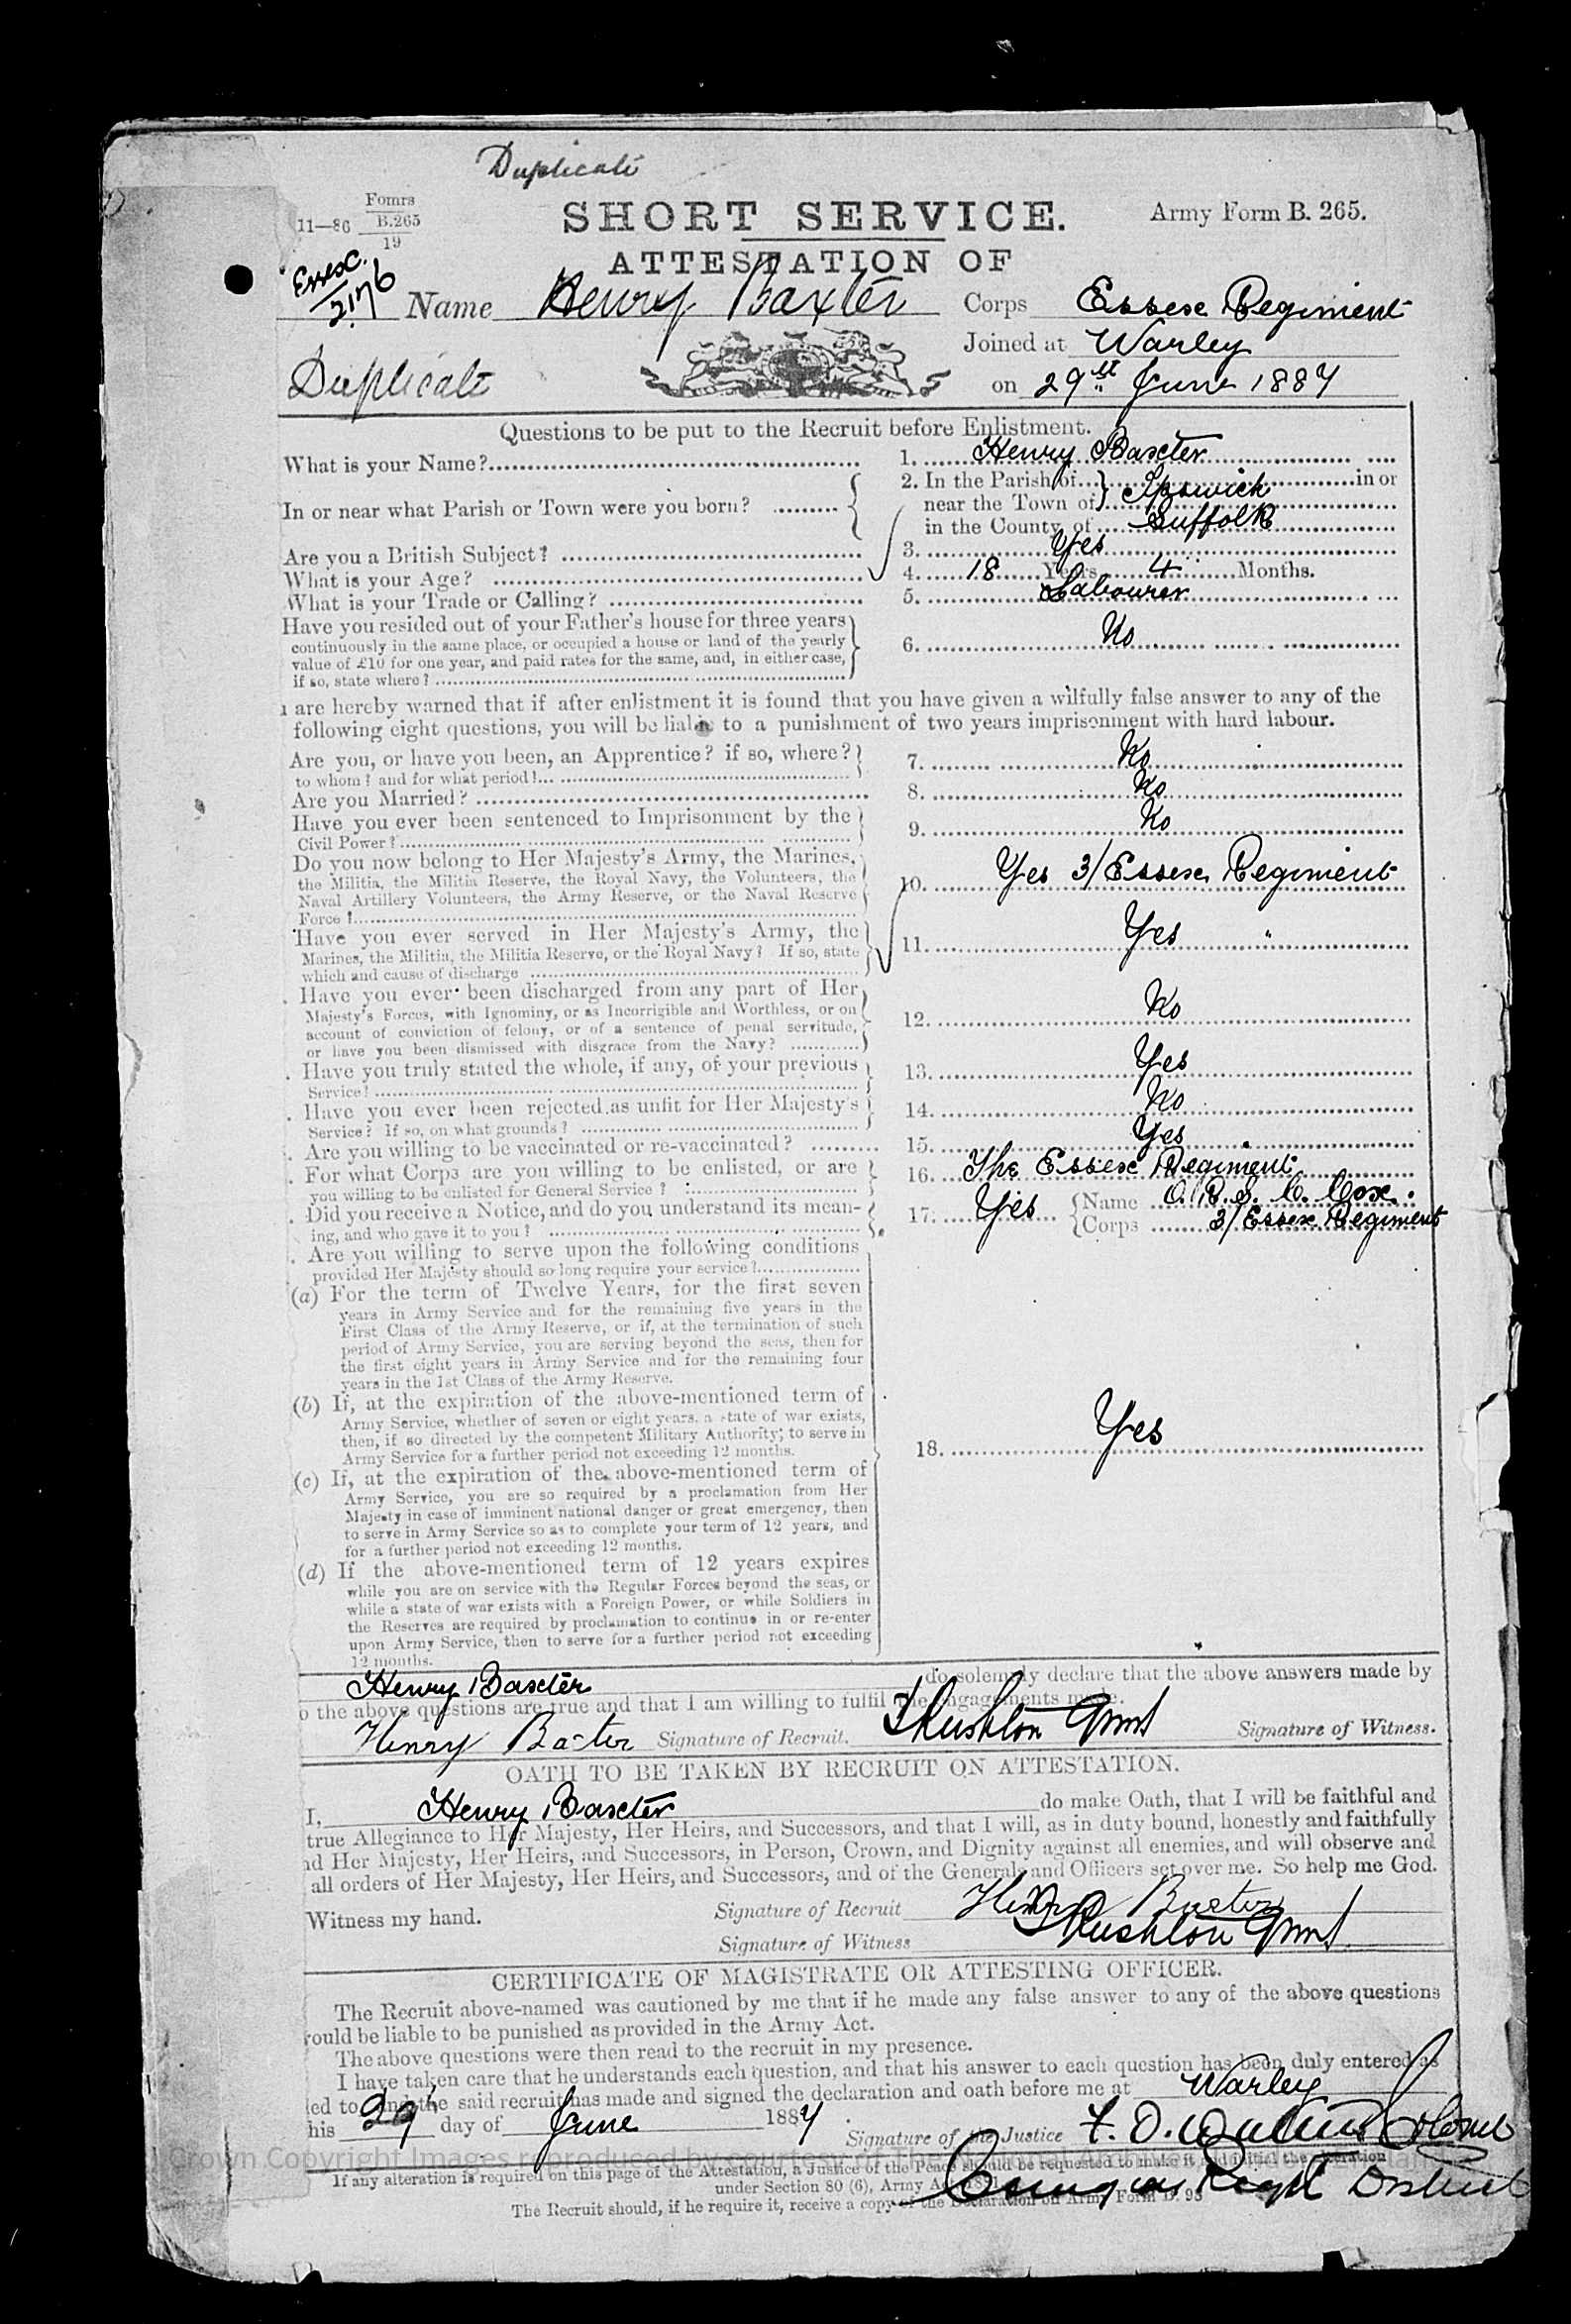 Duplicate
11—86 Fomrs B.265 19
SHORT SERVICE.
Army Form B. 265.
ATTESTATION OF
Essex. 2176
Name Henry Baxter
Corps Essex Regiment
Joined at Warley
Duplicate
on 29th June 1887
Questions to be put to the Recruit before Enlistment.
What is your Name?
1. Henry Baxter
In or near what Parish or Town were you born?
2. In the Parish of in or
near the Town of Ipswich
in the County of Suffolk
Are you a British Subject?
3. Yes
What is your Age?
4. 18 Years 4 Months.
What is your Trade or Calling?
5. Labourer
Have you resided out of your Father's house for three years
continuously in the same place, or occupied a house or land of the yearly
value of £10 for one year, and paid rates for the same, and, in either case,
if so, state where?
6. No
u are hereby warned that if after enlistment it is found that you have given a wilfully false answer to any of the
following eight questions, you will be liable to a punishment of two years imprisonment with hard labour.
Are you, or have you been, an Apprentice? if so, where?
to whom? and for what period?
7. No
Are you Married?
8. No
Have you ever been sentenced to Imprisonment by the
Civil Power?
9. No
Do you now belong to Her Majesty's Army, the Marines,
the Militia, the Militia Reserve, the Royal Navy, the Volunteers, the
Naval Artillery Volunteers, the Army Reserve, or the Naval Reserve
Force?
10. Yes 3/Essex Regiment
Have you ever served in Her Majesty's Army, the
Marines, the Militia, the Militia Reserve, or the Royal Navy? If so, state
which and cause of discharge
11. Yes "
. Have you ever been discharged from any part of Her
Majesty's Forces, with Ignominy, or as Incorrigible and Worthless, or on
account of conviction of felony, or of a sentence of penal servitude,
or have you been dismissed with disgrace from the Navy?
12. No
. Have you truly stated the whole, if any, of your previous
Service?
13. Yes
. Have you ever been rejected as unfit for Her Majesty's
Service? If so, on what grounds?
14. No
. Are you willing to be vaccinated or re-vaccinated?
15. Yes
. For what Corps are you willing to be enlisted, or are
you willing to be enlisted for General Service?
16. The Essex Regiment
. Did you receive a Notice, and do you understand its mean-
ing, and who gave it to you?
17. Yes Name C. R. S. C. Cox.
Corps 3/Essex Regiment
. Are you willing to serve upon the following conditions
provided Her Majesty should so long require your service?
(a) For the term of Twelve Years, for the first seven
years in Army Service and for the remaining five years in the
First Class of the Army Reserve, or if, at the termination of such
period of Army Service, you are serving beyond the seas, then for
the first eight years in Army Service and for the remaining four
years in the 1st Class of the Army Reserve.
(b) If, at the expiration of the above-mentioned term of
Army Service, whether of seven or eight years, a state of war exists,
then, if so directed by the competent Military Authority; to serve in
Army Service for a further period not exceeding 12 months.
18. Yes
(c) If, at the expiration of the above-mentioned term of
Army Service, you are so required by a proclamation from Her
Majesty in case of imminent national danger or great emergency, then
to serve in Army Service so as to complete your term of 12 years, and
for a further period not exceeding 12 months.
(d) If the above-mentioned term of 12 years expires
while you are on service with the Regular Forces beyond the seas, or
while a state of war exists with a Foreign Power, or while Soldiers in
the Reserves are required by proclamation to continue in or re-enter
upon Army Service, then to serve for a further period not exceeding
12 months.
Henry Baxter do solemnly declare that the above answers made by
o the above questions are true and that I am willing to fulfil the engagements made.
Henry Baxter Signature of Recruit. Rushton Signature of Witness.
OATH TO BE TAKEN BY RECRUIT ON ATTESTATION.
I, Henry Baxter do make Oath, that I will be faithful and
true Allegiance to Her Majesty, Her Heirs, and Successors, and that I will, as in duty bound, honestly and faithfully
nd Her Majesty, Her Heirs, and Successors, in Person, Crown, and Dignity against all enemies, and will observe and
all orders of Her Majesty, Her Heirs, and Successors, and of the Generals and Officers set over me. So help me God.
Witness my hand.
Signature of Recruit Henry Baxter
Signature of Witness Rushton
CERTIFICATE OF MAGISTRATE OR ATTESTING OFFICER.
The Recruit above-named was cautioned by me that if he made any false answer to any of the above questions
ould be liable to be punished as provided in the Army Act.
The above questions were then read to the recruit in my presence.
I have taken care that he understands each question, and that his answer to each question has been duly entered as
ied to and the said recruit has made and signed the declaration and oath before me at Warley
his 29 day of June 1887
Signature of the Justice F. O. Colonel
Comg Regtl District
Crown Copyright Images reproduced by courtesy of The
If any alteration is required on this page of the Attestation, a Justice of the Peace should be requested to make it and initial the alteration
under Section 80 (6), Army Act
The Recruit should, if he require it, receive a copy of the Declaration on Army Form B. 93